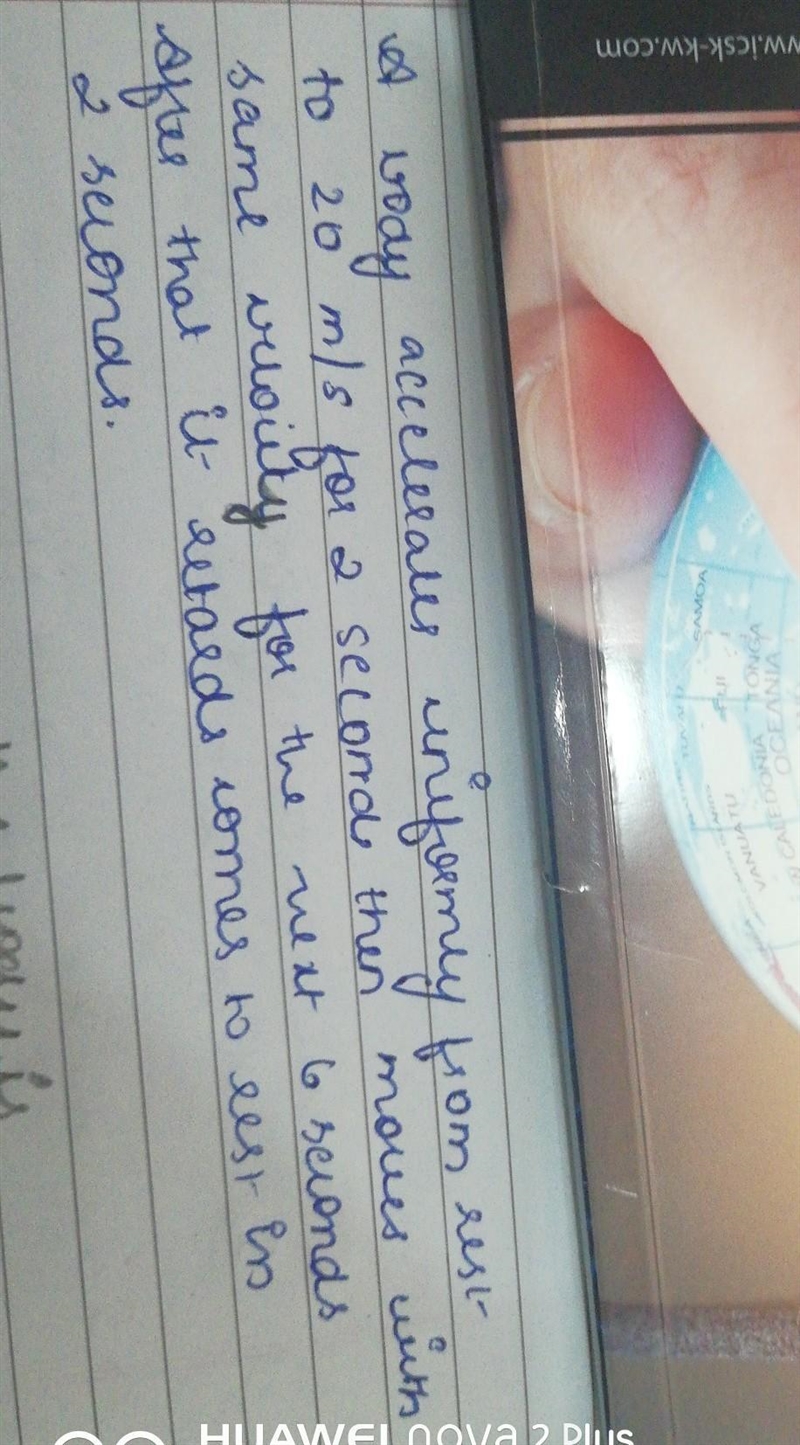 A body accelerates uniformly from rest
to 20 m/s for 2 seconds then moves with
same velocity for the next 6 seconds
After that it retards comes to rest in
2 seconds.
www.icsk-kw.com
SAMOA
TONGA
FIJI
OCEANIA
VANUATU
CALEDONIA
HUAWEI nova 2 Plus